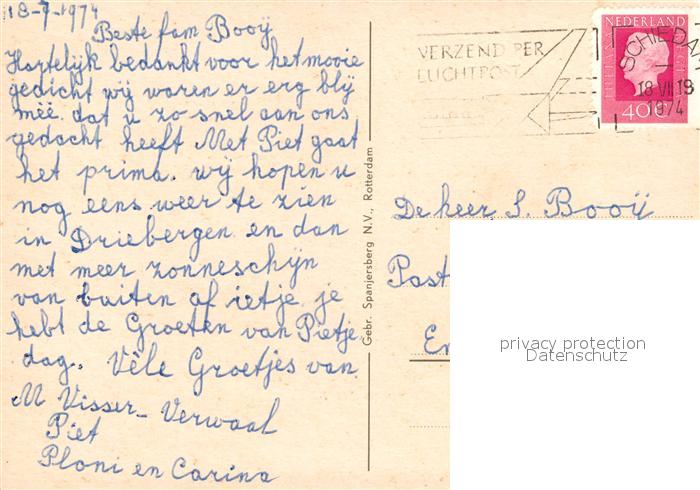 18-7-1974
Beste fam Booÿ
Hartelÿk bedankt voor het mooie
gedicht wÿ waren er erg blÿ
mëë. dat u zo snel aan ons
gedacht heeft Met Piet gaat
het prima. wÿ hopen u
nog eens weer te zien
in Driebergen en dan
met meer zonneschÿn
van buiten af ietje je
hebt de Groeten van Pietje
dag. Vële Groetjes van
M Visser-Verwaal
Piet
Ploni en Carina
Gebr. Spanjersberg N.V., Rotterdam
VERZEND PER
LUCHTPOST
NEDERLAND
40c
SCHIEDAM
18 VII 19
1974
De heer S. Booÿ
Post
En
privacy protection
Datenschutz